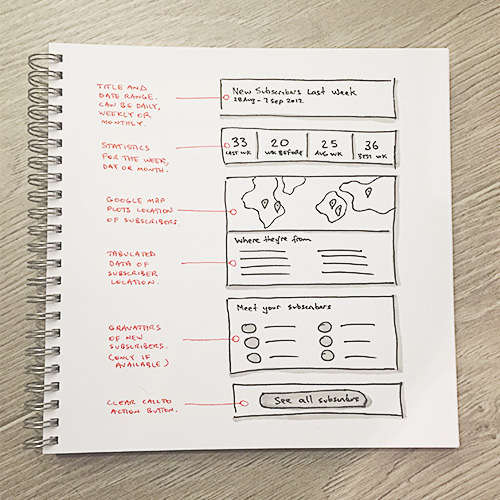 TITLE AND
DATE RANGE.
CAN BE DAILY,
WEEKLY OR
MONTHLY.
New Subscribers Last Week
28 Aug - 7 Sep 2012
STATISTICS
FOR THE WEEK,
DAY OR MONTH.
33
LAST WK
20
WK BEFORE
25
AVG WK
36
BEST WK
GOOGLE MAP
PLOTS LOCATION
OF SUBSCRIBERS.
TABULATED
DATA OF
SUBSCRIBER
LOCATION.
Where they're from
GRAVATARS
OF NEW
SUBSCRIBERS.
(ONLY IF
AVAILABLE)
Meet your subscribers
CLEAR CALL TO
ACTION BUTTON.
See all subscribers